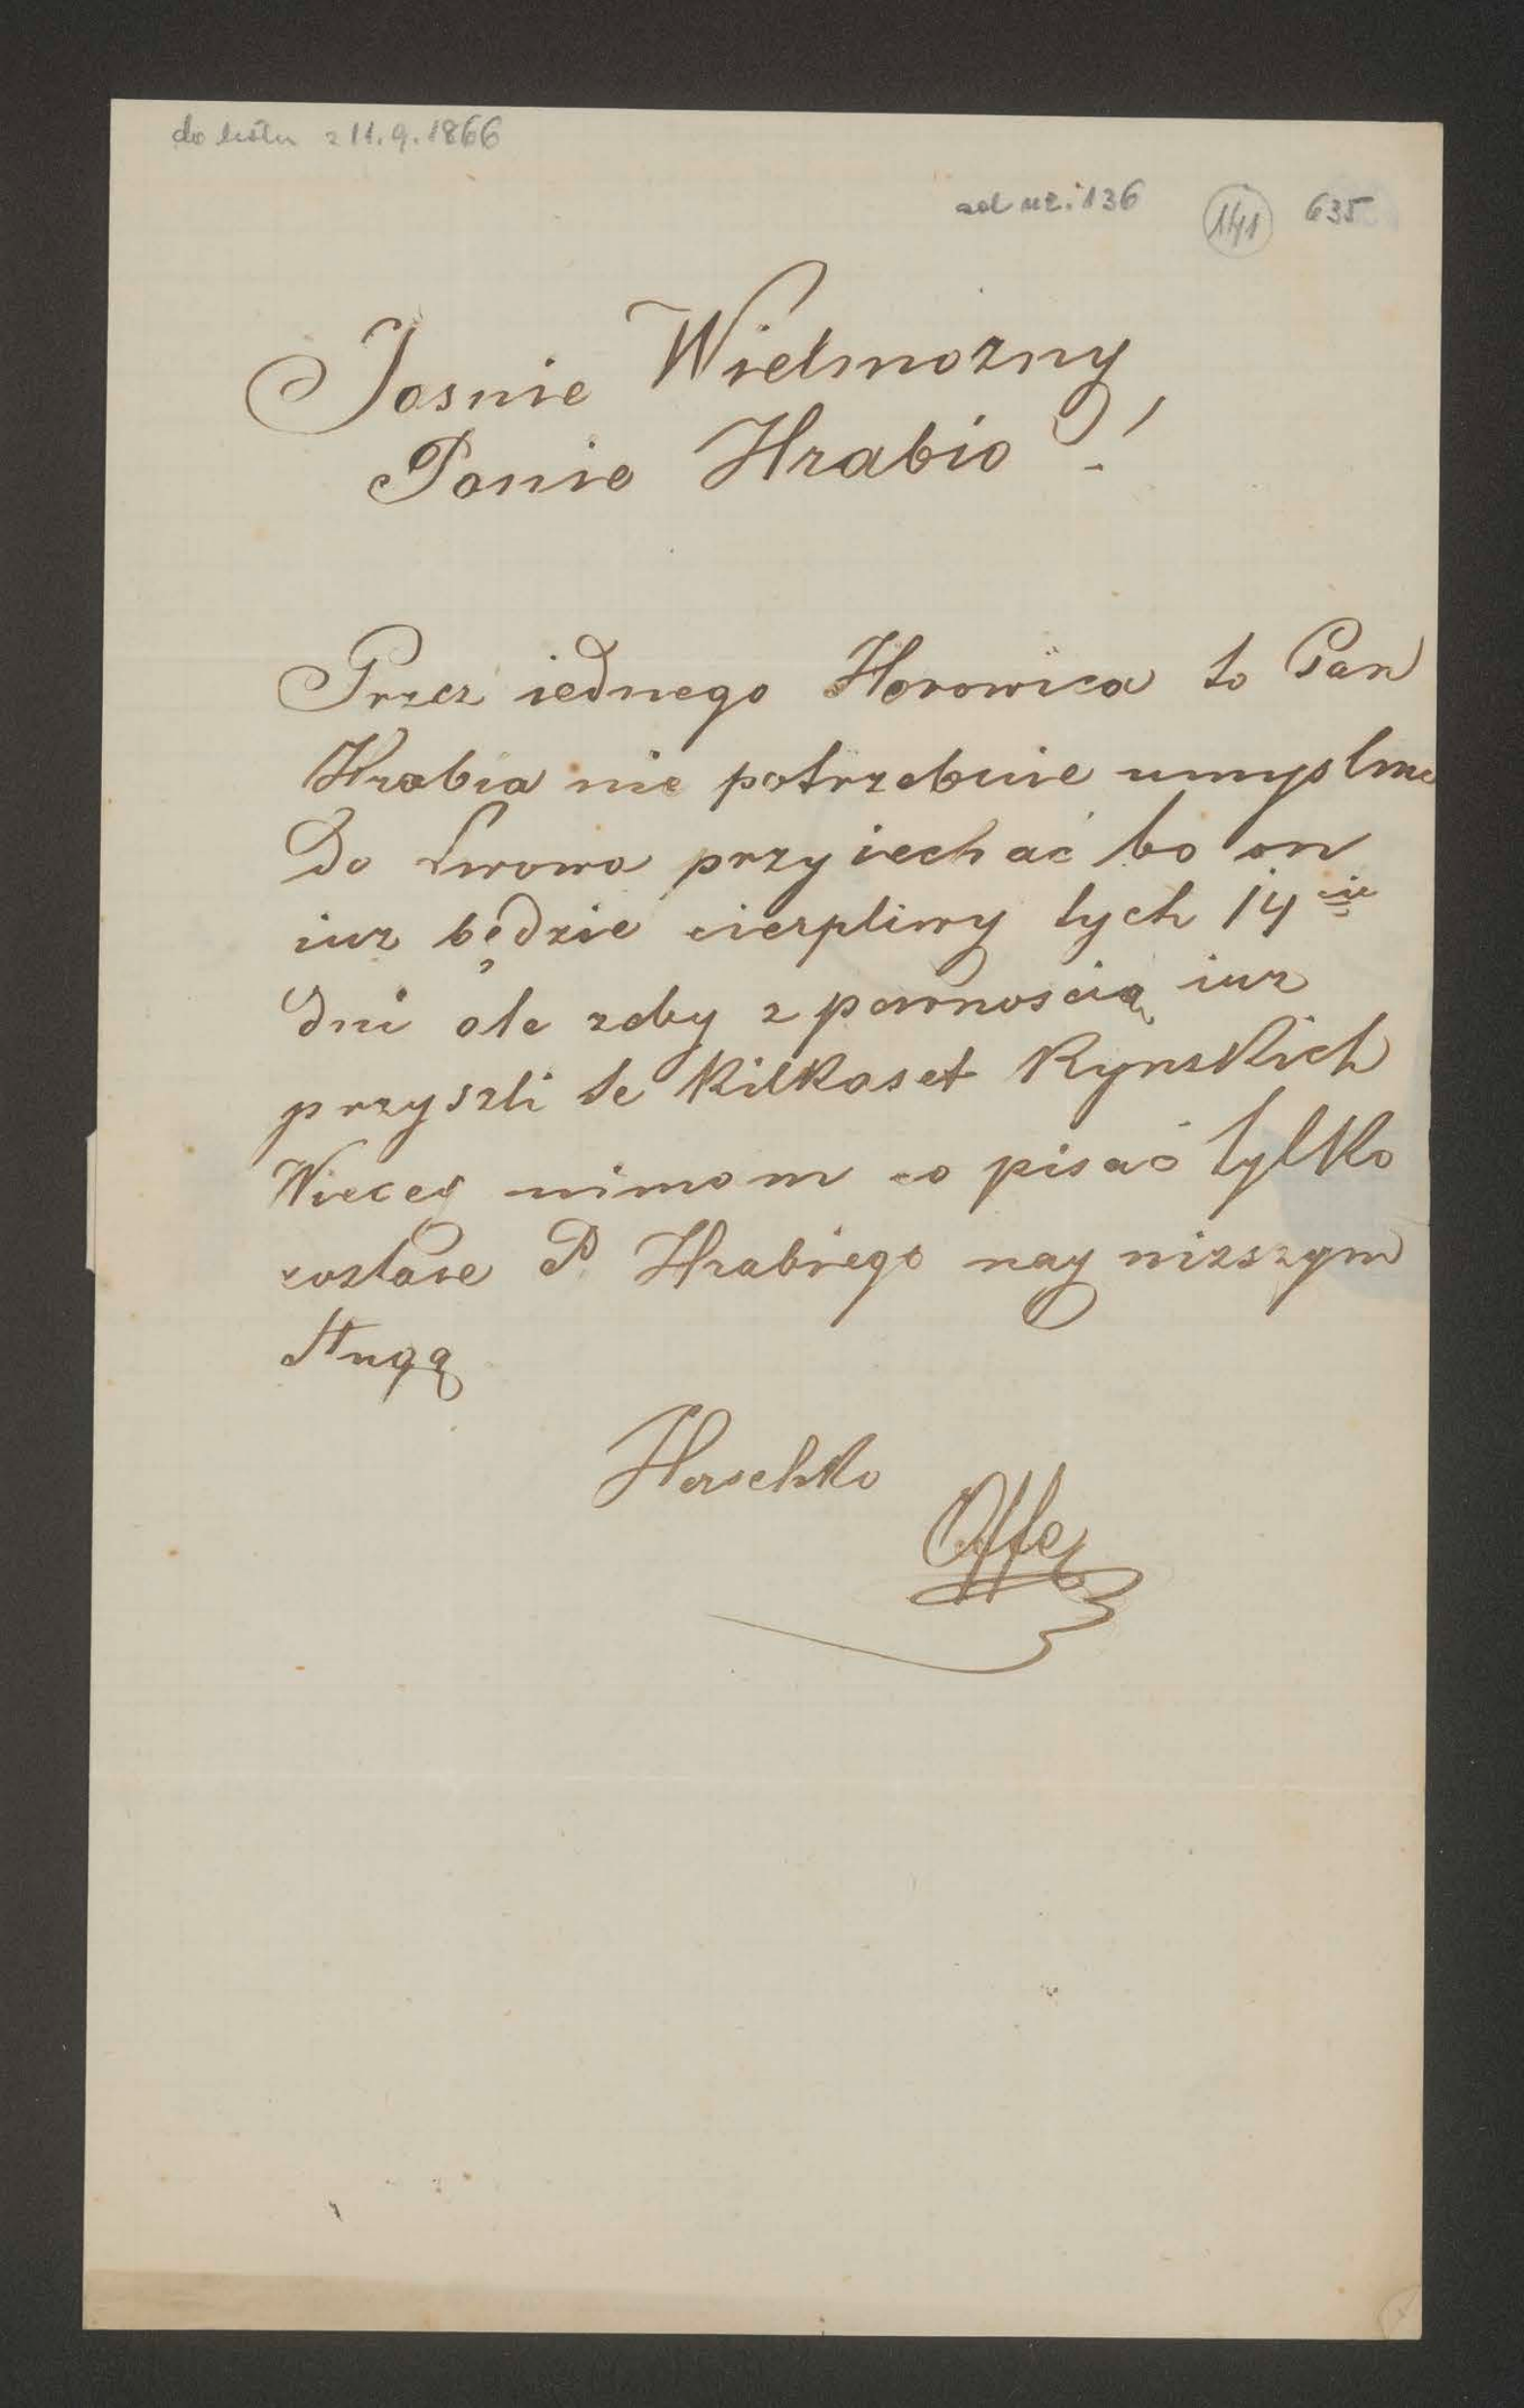 do listu z 11.9.1866
ad nr. 136 141 635
Jasnie Wielmozny
Panie Hrabio!
Przez iednego Horowica to Pan
Hrabia nie potrzebuie umyslne
Do Lwowa przyiechać bo on
iuz będzie cierpliwy tych 14cie
Dni ale zeby z pewnoscią iuz
przyszli te kilkaset Rynskich
Wiecey nimam co pisać tylko
zostaie P Hrabiego nay nizszym
sługą
Herschko